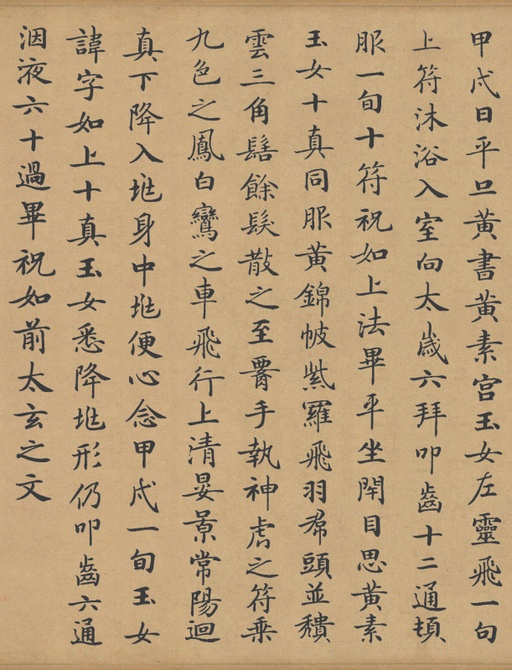 甲戌日平旦黃書黃素宮玉女左靈飛一旬
上符沐浴入室向太歲六拜叩齒十二通頓
服一旬十符祝如上法畢平坐閇目思黃素
玉女十真同服黃錦帔紫羅飛羽帬頭並穨
雲三角髻餘髮散之至𦝫手執神虎之符乗
九色之鳳白鸞之車飛行上清晏景常陽迴
真下降入𡊮身中𡊮便心念甲戌一旬玉女
諱字如上十真玉女悉降𡊮形仍叩齒六通
洇液六十過畢祝如前太玄之文